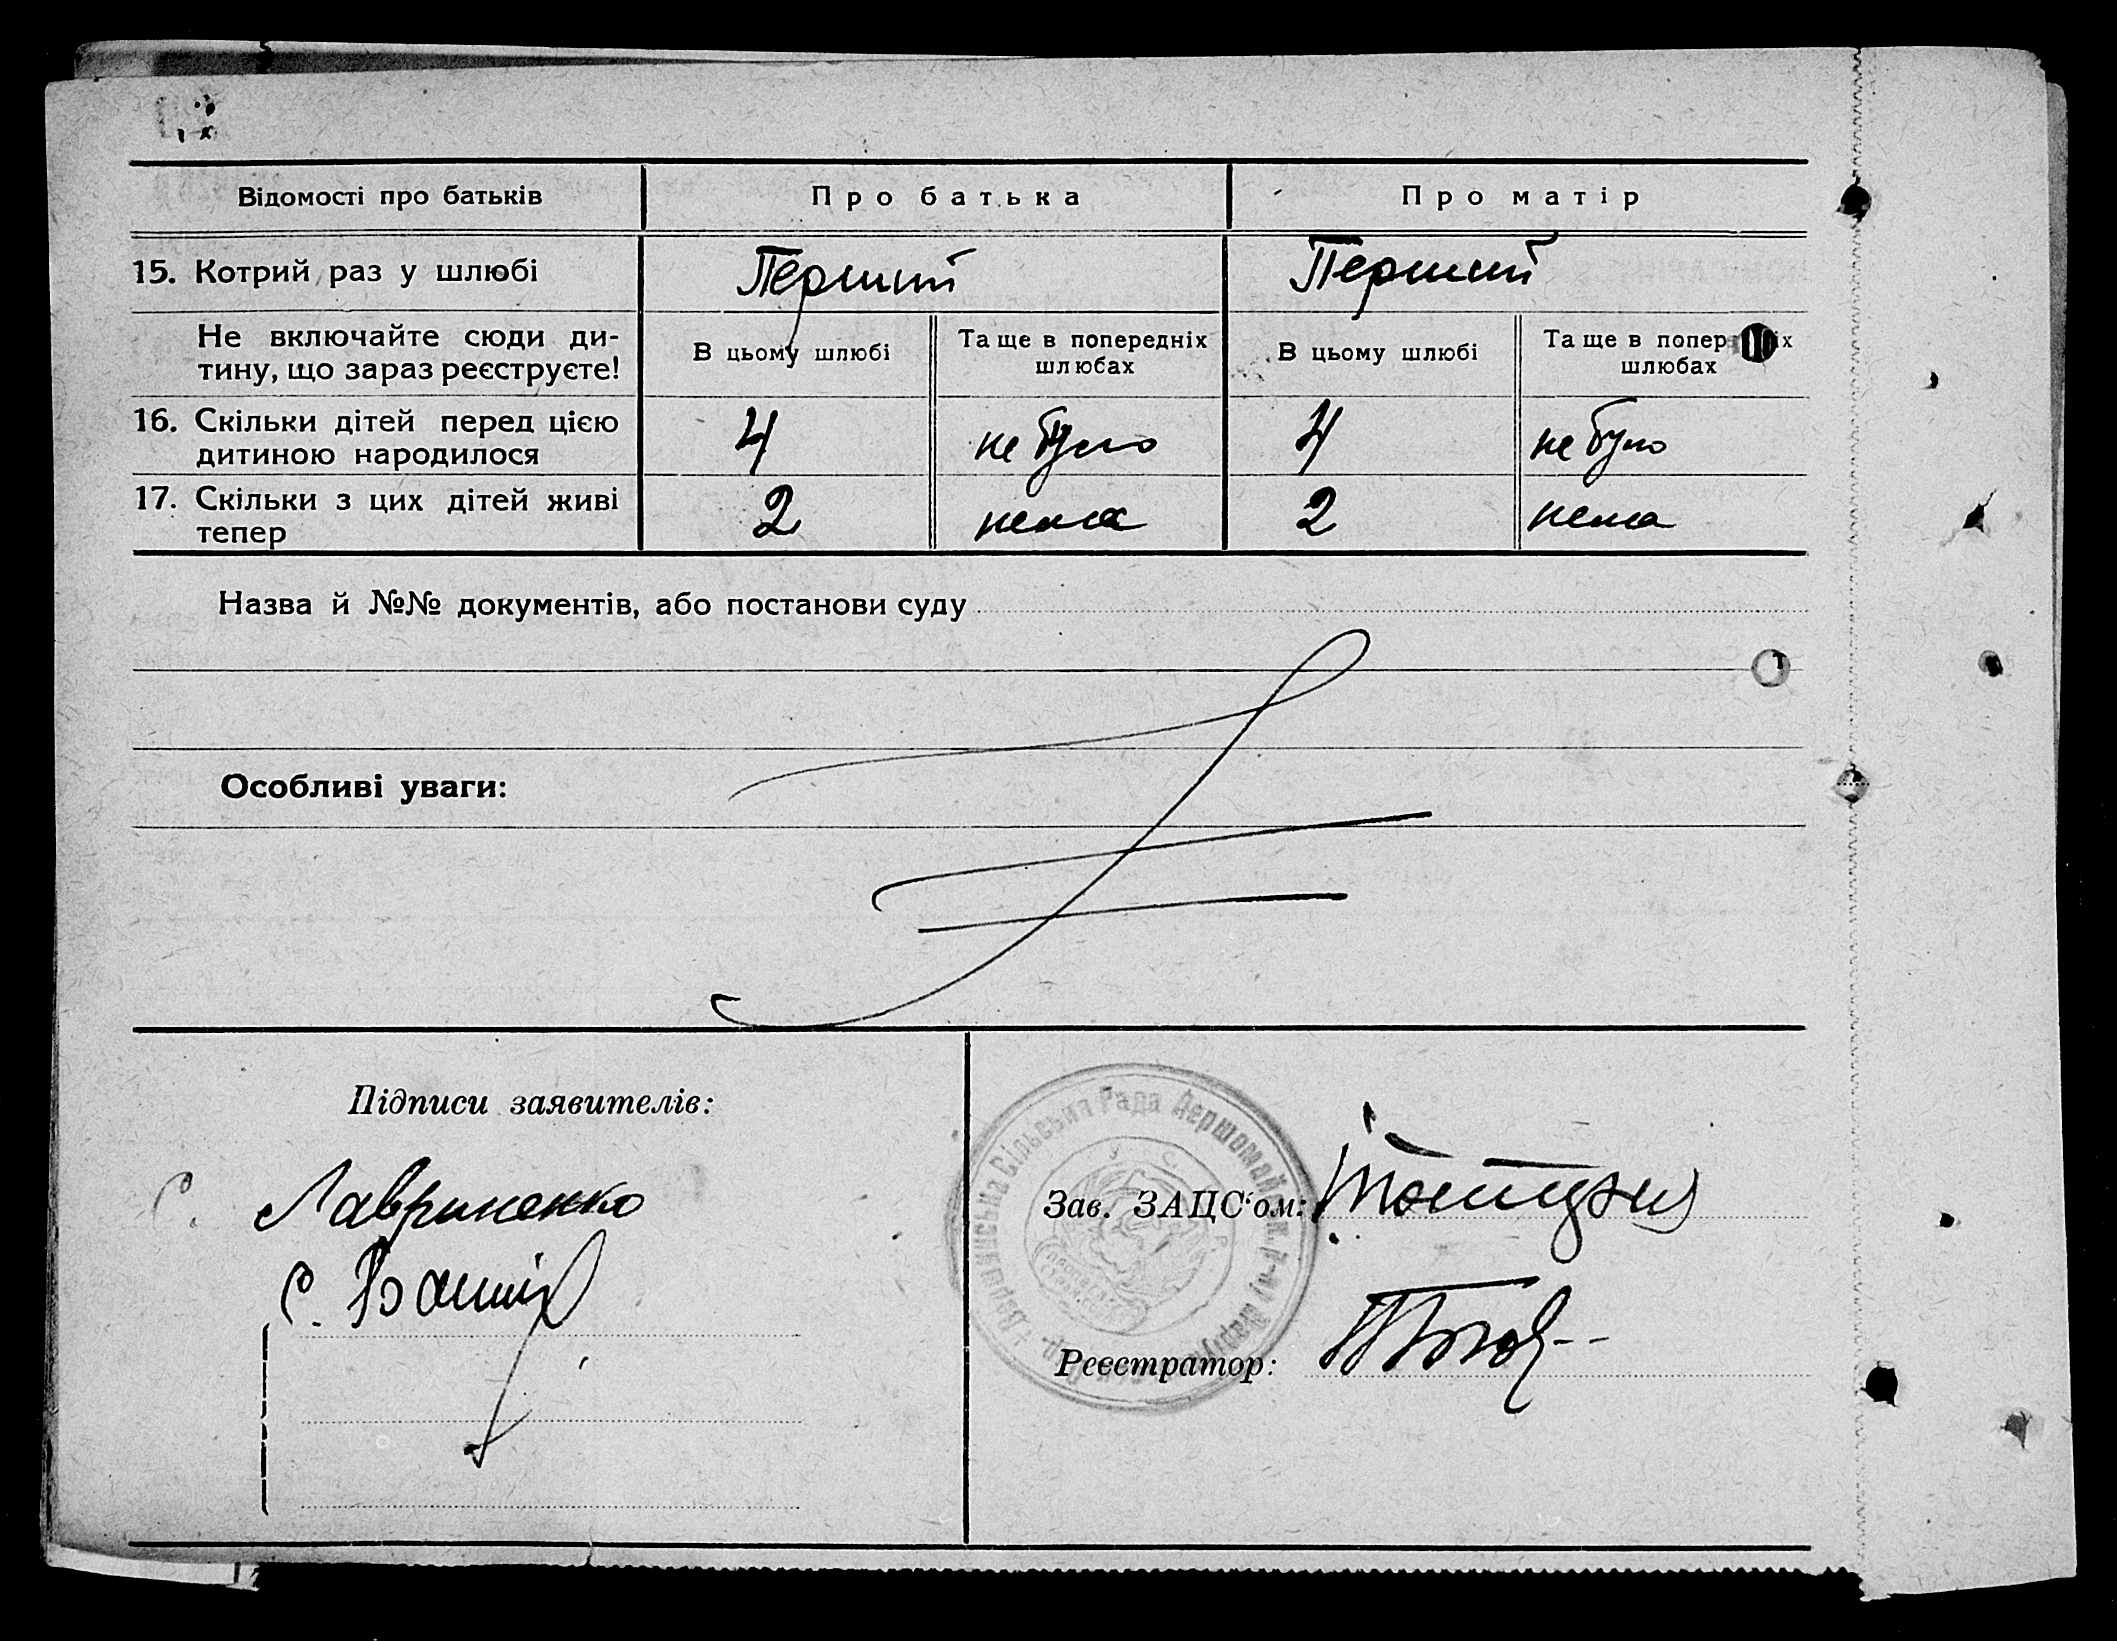 Відомості про батьків
Про батька
Про матір
15. Котрий раз у шлюбі
Перший
Перший
Не включайте сюди ди-
тину, що зараз реєструєте!
В цьому шлюбі
Та ще в попередніх
шлюбах
В цьому шлюбі
Та ще в попер іх
шлюбах
16. Скільки дітей перед цією
дитиною народилося
4
не було
4
не було
17. Скільки з цих дітей живі
тепер
2
нема
2
нема
Назва й №№ документів, або постанови суду
Особливі уваги:
Підписи заявителів:
С. Лавриненко
С.
Сільська Рада Першомайськ. Р-ну
УСРР
Зав. ЗАЦС'ом:
Реєстратор: